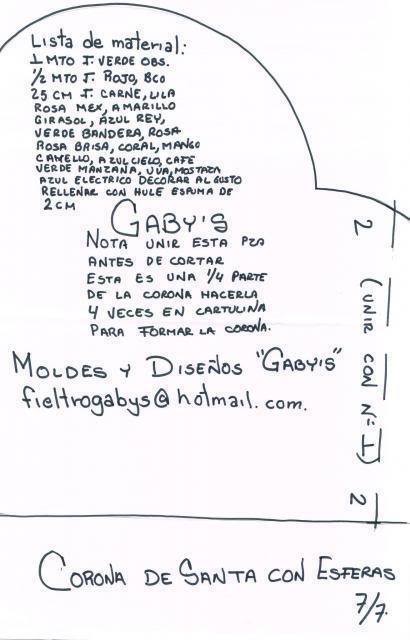 Lista de material:
1 MTO T. VERDE OBS.
1/2 MTO T. ROJO, BCO
25 CM T. CARNE, LILA
ROSA MEX, AMARILLO
GIRASOL, AZUL REY,
VERDE BANDERA, ROSA
ROSA BRISA, CORAL, MANGO
CAMELLO, AZUL CIELO, CAFE
VERDE MANZANA, UVA, MOSTAZA
AZUL ELECTRICO DECORAR AL GUSTO
RELLENAR CON HULE ESPUMA DE
2 CM
GABY'S
NOTA UNIR ESTA PZA
ANTES DE CORTAR
ESTA ES UNA 1/4 PARTE
DE LA CORONA HACERLA
4 VECES EN CARTULINA
PARA FORMAR LA CORONA.
MOLDES Y DISEÑOS "GABY'S"
fieltrogabys@hotmail.com.
2 (UNIR CON Nº 1) 2
CORONA DE SANTA CON ESFERAS
7/7.